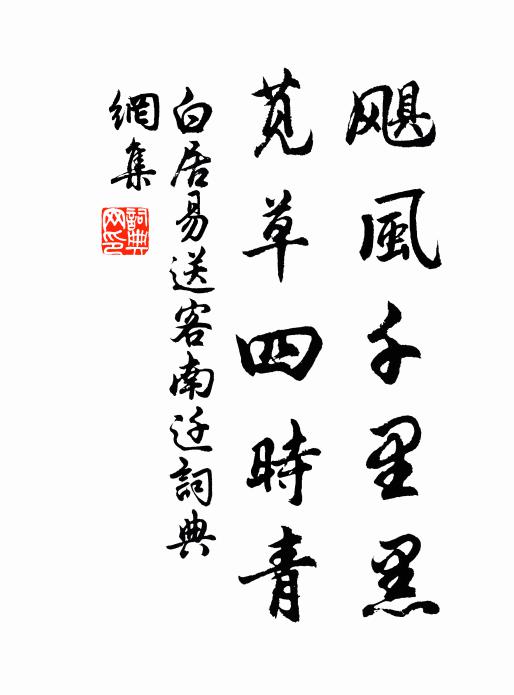 颶風千里黑
莧草四時青
白居易送客南迁詞典
網集
詞典
网印